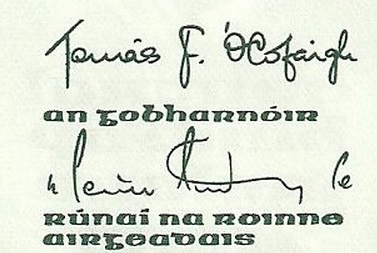 Tomás F. Ó Cofaigh
an gobharnóir
rúnaí na roinne
airgeadais